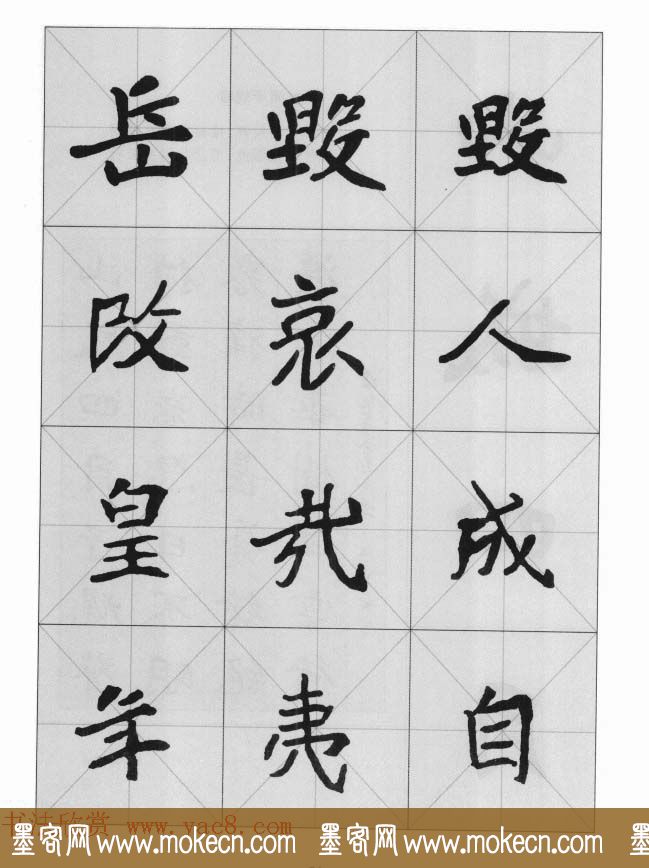 毀人成自
毀哀
岳改皇年
书法欣赏 www.yac8.com
墨客网 www.mokecn.com 墨客网 www.mokecn.com